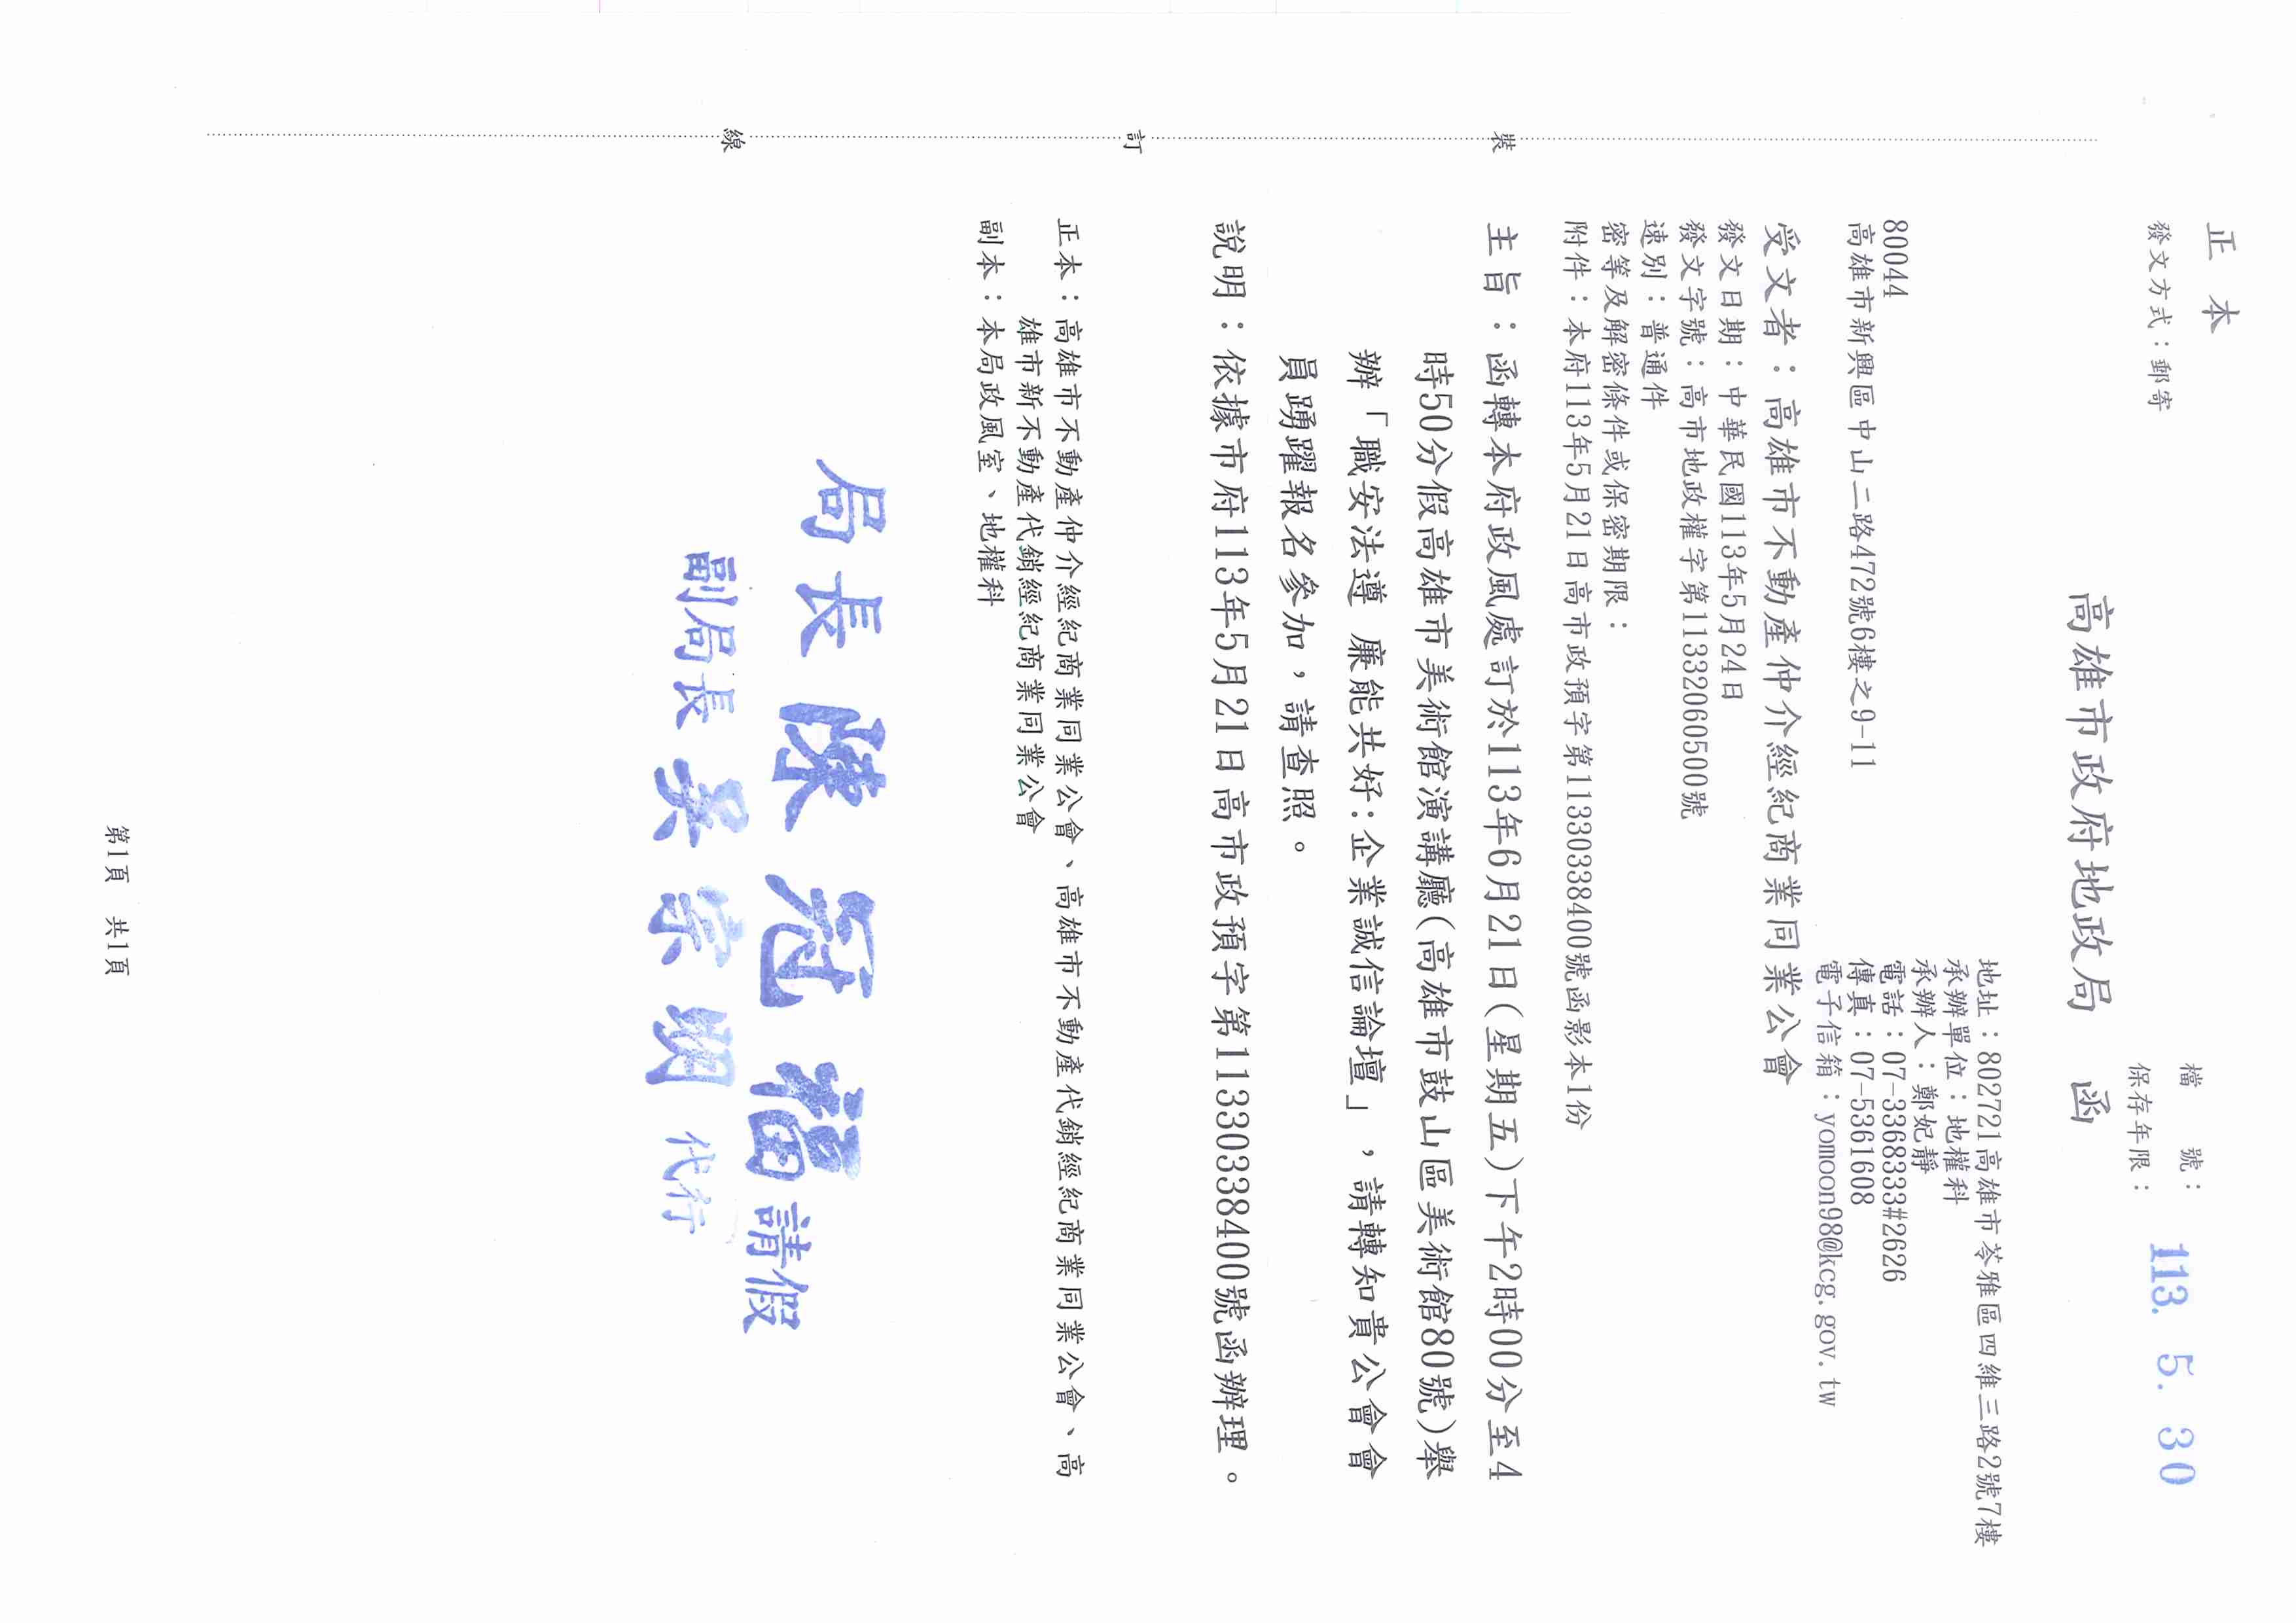 正 本
發文方式：郵寄
檔 號：
保存年限：
113. 5. 30
高雄市政府地政局 函
地址：802721高雄市苓雅區四維三路2號7樓
承辦單位：地權科
承辦人：鄭妃靜
電話：07-3368333#2626
傳真：07-5361608
電子信箱：yomoon98@kcg.gov.tw
80044
高雄市新興區中山二路472號6樓之9-11
受文者：高雄市不動產仲介經紀商業同業公會
發文日期：中華民國113年5月24日
發文字號：高市地政權字第11332060500號
速別：普通件
密等及解密條件或保密期限：
附件：本府113年5月21日高市政預字第11330338400號函影本1份
主旨：函轉本府政風處訂於113年6月21日(星期五)下午2時00分至4
時50分假高雄市美術館演講廳(高雄市鼓山區美術館80號)舉
辦「職安法遵 廉能共好:企業誠信論壇」，請轉知貴公會會
員踴躍報名參加，請查照。
說明：依據市府113年5月21日高市政預字第11330338400號函辦理。
正本：高雄市不動產仲介經紀商業同業公會、高雄市不動產代銷經紀商業同業公會、高
雄市新不動產代銷經紀商業同業公會
副本：本局政風室、地權科
局長 陳冠福 請假
副局長 吳宗明 代行
裝
訂
線
第1頁 共1頁